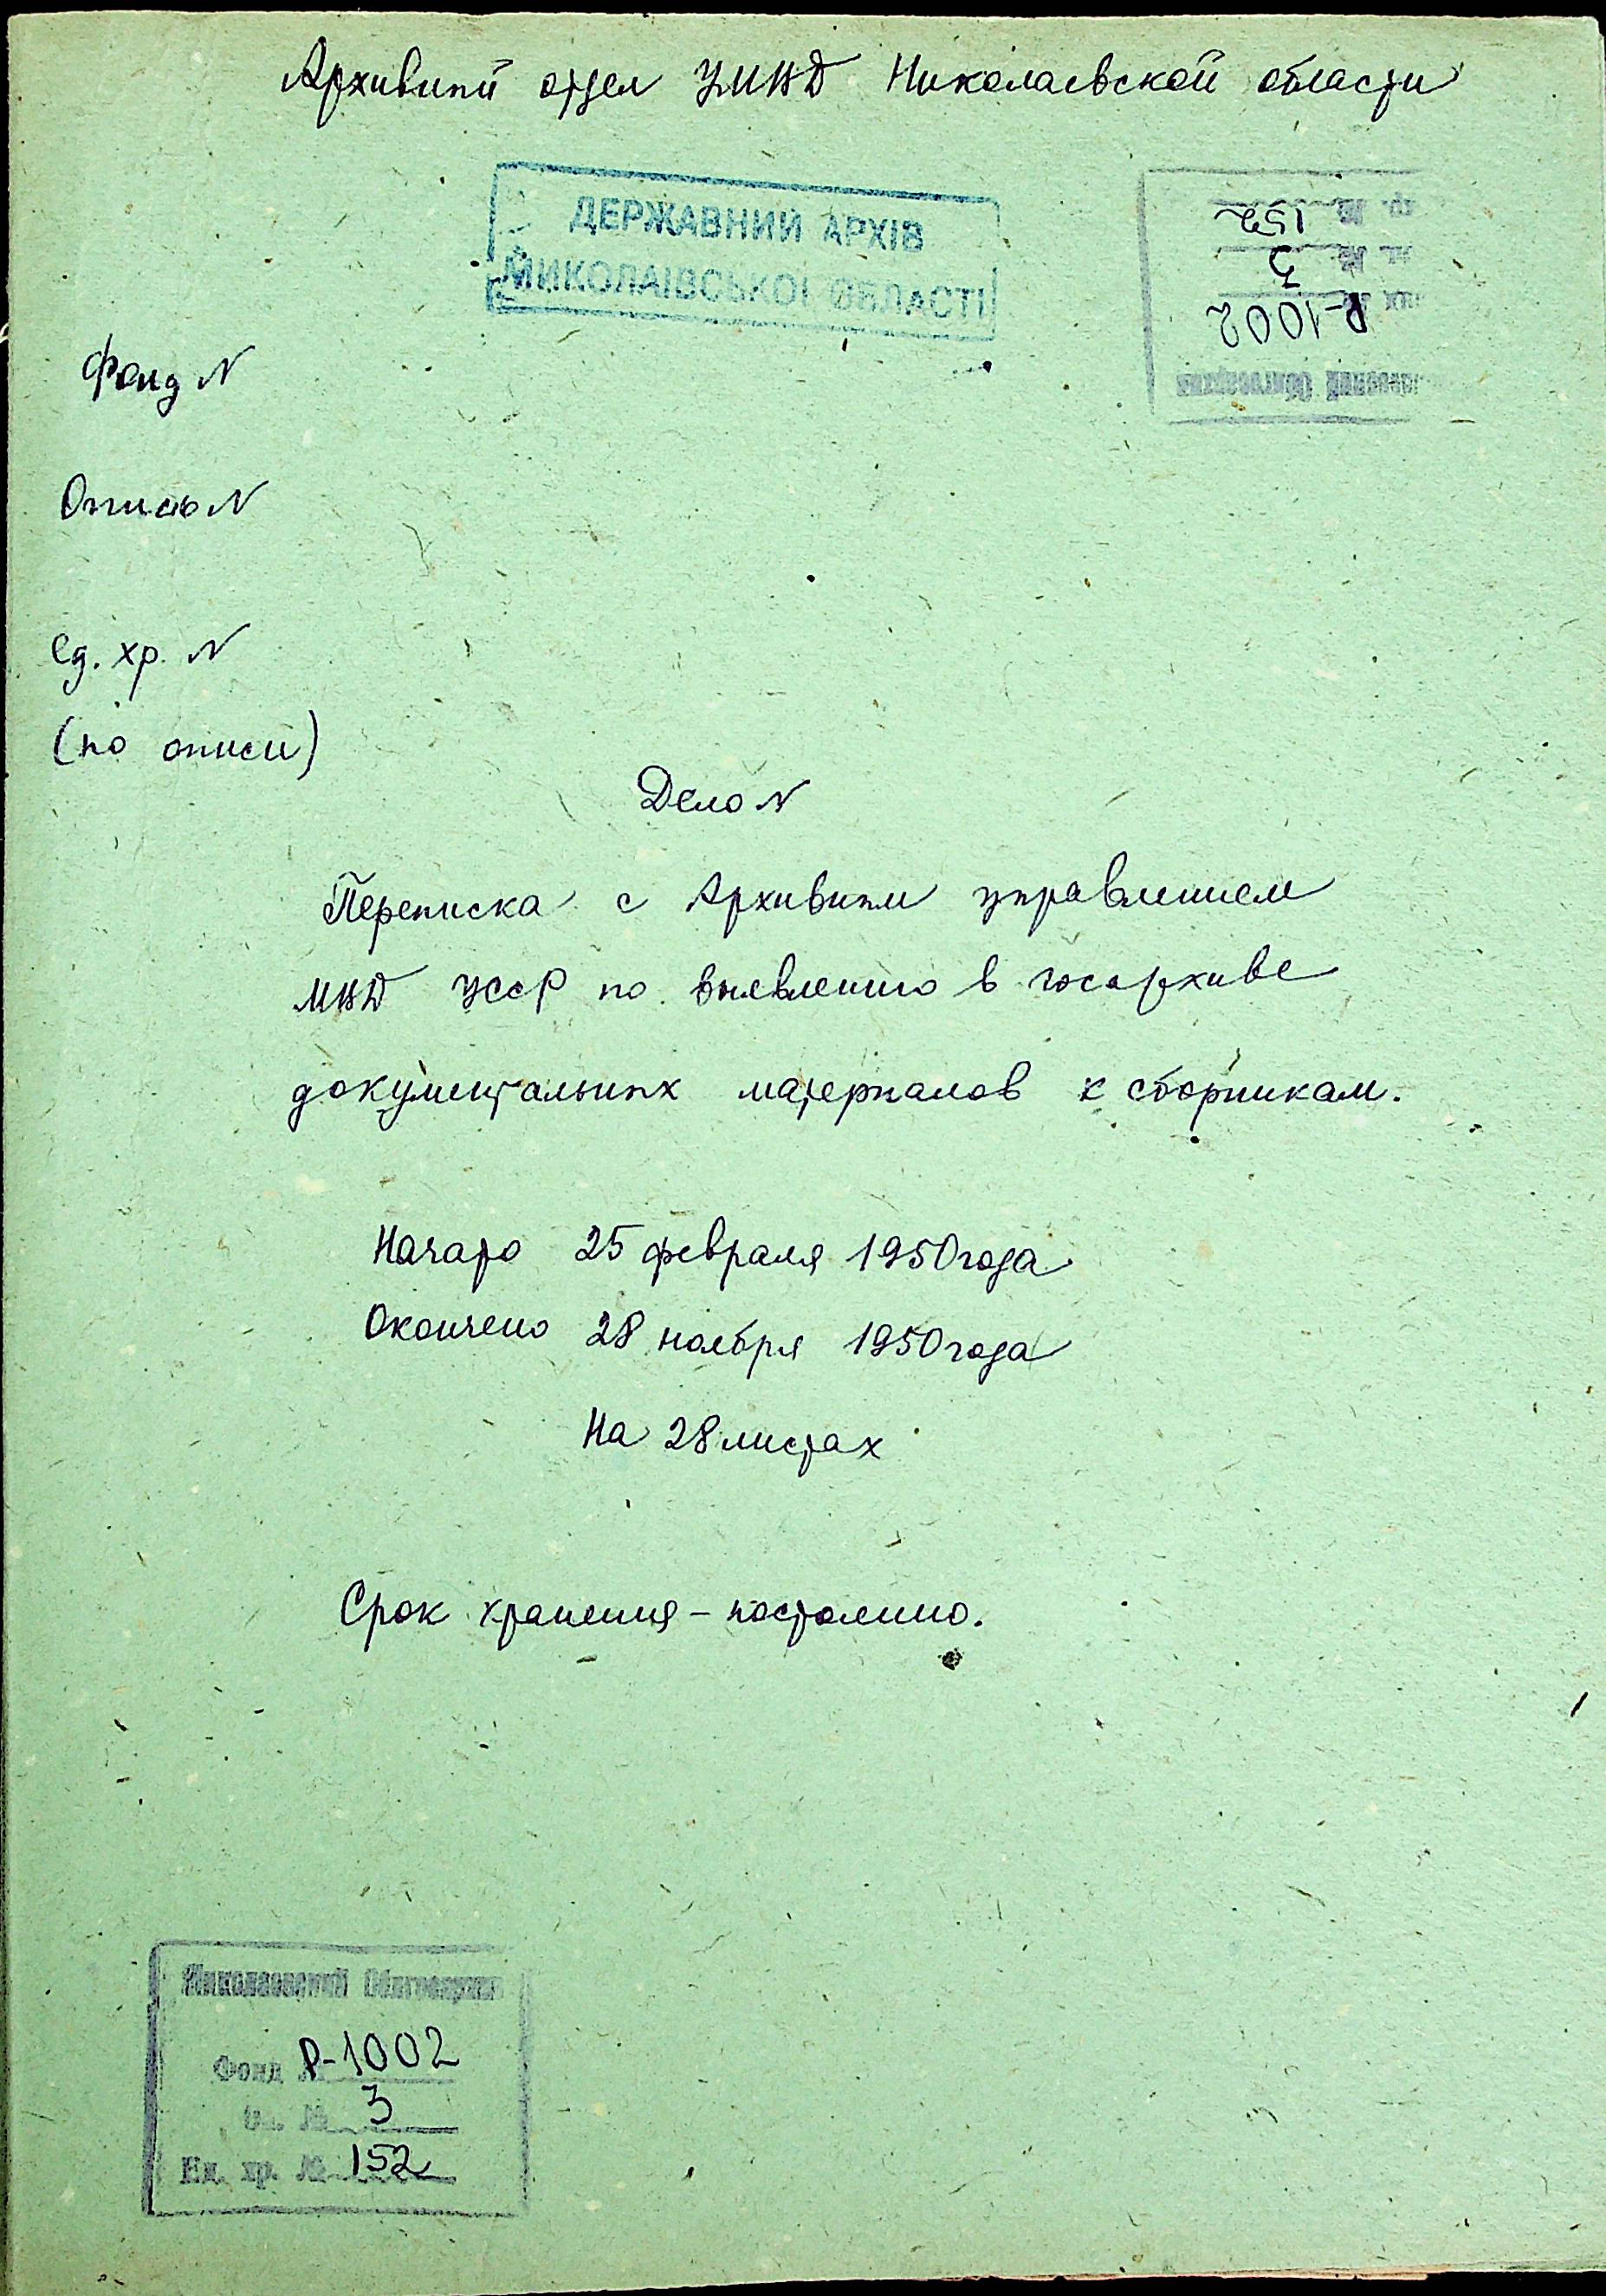 Архивный отдел УМВД Николаевской области
ДЕРЖАВНИЙ АРХІВ
МИКОЛАЇВСЬКОЇ ОБЛАСТІ
р. № 152
№ 3
Р-1002
Облгосархив
Фонд N
Опись N
Ед. хр. N
(по описи)
Дело N
Переписка с Архивным управлением
МВД УССР по выявлению в госархиве
документальных материалов к сборникам.
Начато 25 февраля 1950 года
Окончено 28 ноября 1950 года
На 28 листах
Срок хранения – постоянно.
Николаевский Облгосархив
Фонд № Р-1002
Оп. № 3
Ед. хр. № 152